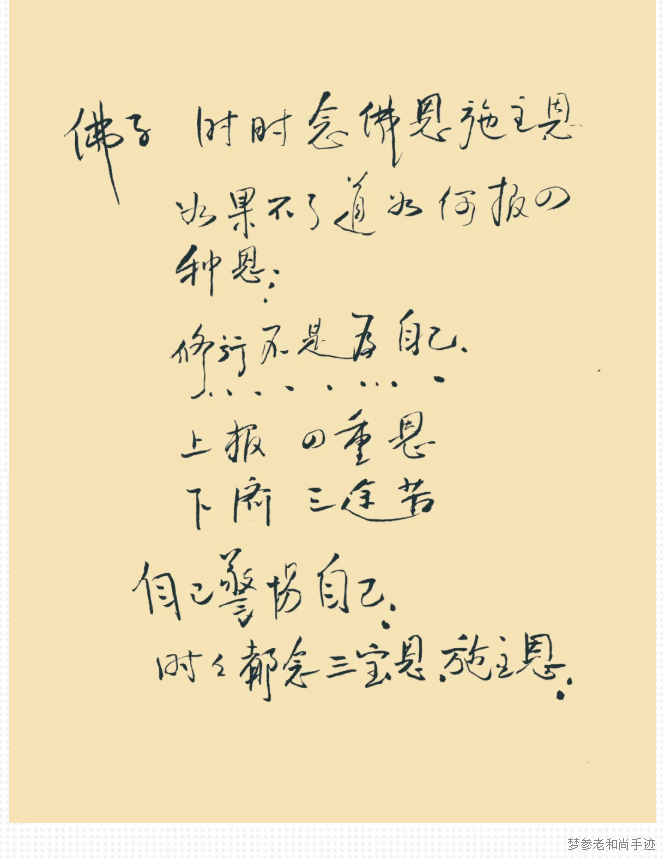 佛子 时时念佛恩施主恩
如果不了道如何报四
种恩:
修行不是为自己.
上报 四重恩
下济 三途苦
自己警惕自己.
时々都念三宝恩.施主恩.
梦参老和尚手迹